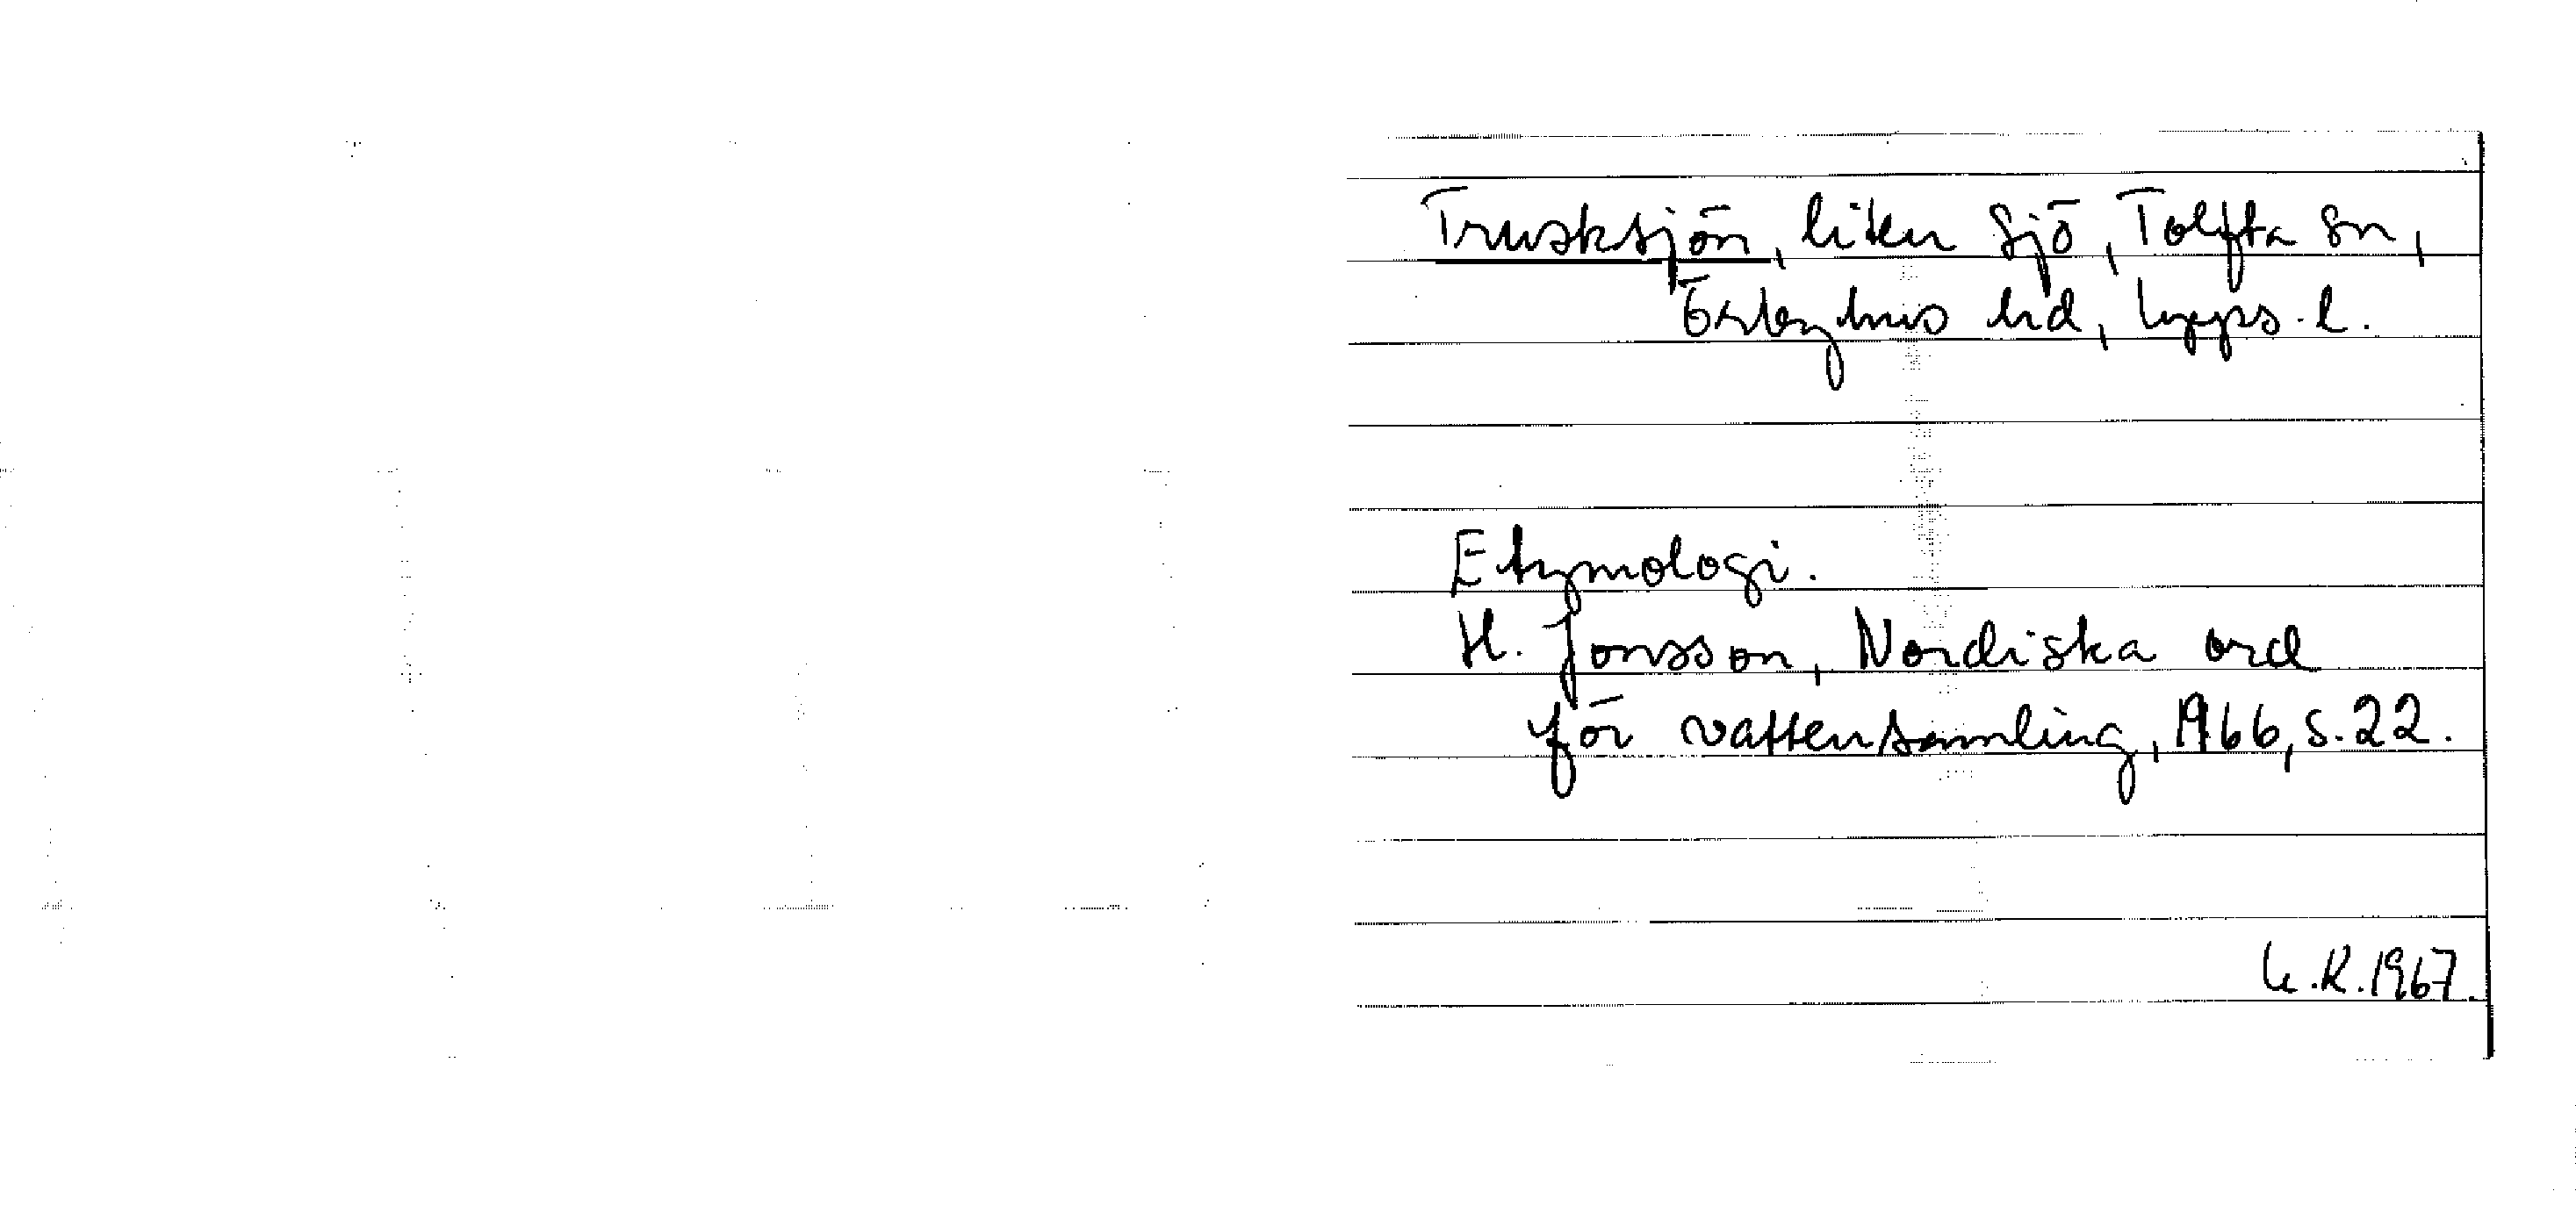 Trusksjön, liten sjö, Tolfta sn,
Örbyhus hd, Upps. l.
Etymologi.
H. Jonsson, Nordiska ord
för vattensamling, 1966, s. 22.
U.R. 1967.